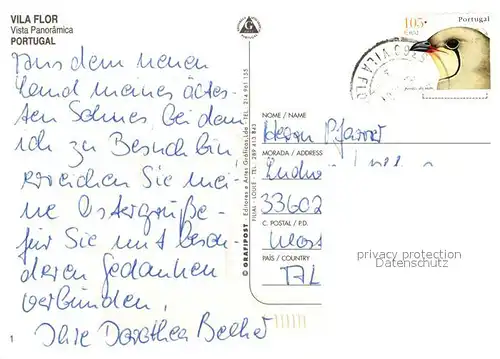 VILA FLOR
Vista Panorâmica
PORTUGAL
aus dem neuen
Land meines ältes-
ten Sohnes, bei dem
ich zu Besuch bin,
erreichen Sie mei-
ne Ostergrüße -
für Sie mit beson-
deren Gedanken
verbunden,
Ihre Dorothea Becher
1
© GRAFIPOST - Editores e Artes Gráficas, Lda - TEL. 214 961 155
FILIAL - LOULÉ - TEL. 289 413 843
105.
€
Portugal
VILA FLO
NOME / NAME
Herrn Pfarrer
MORADA / ADDRESS
33602
C. POSTAL / P.D.
PAÍS / COUNTRY
privacy protection
Datenschutz